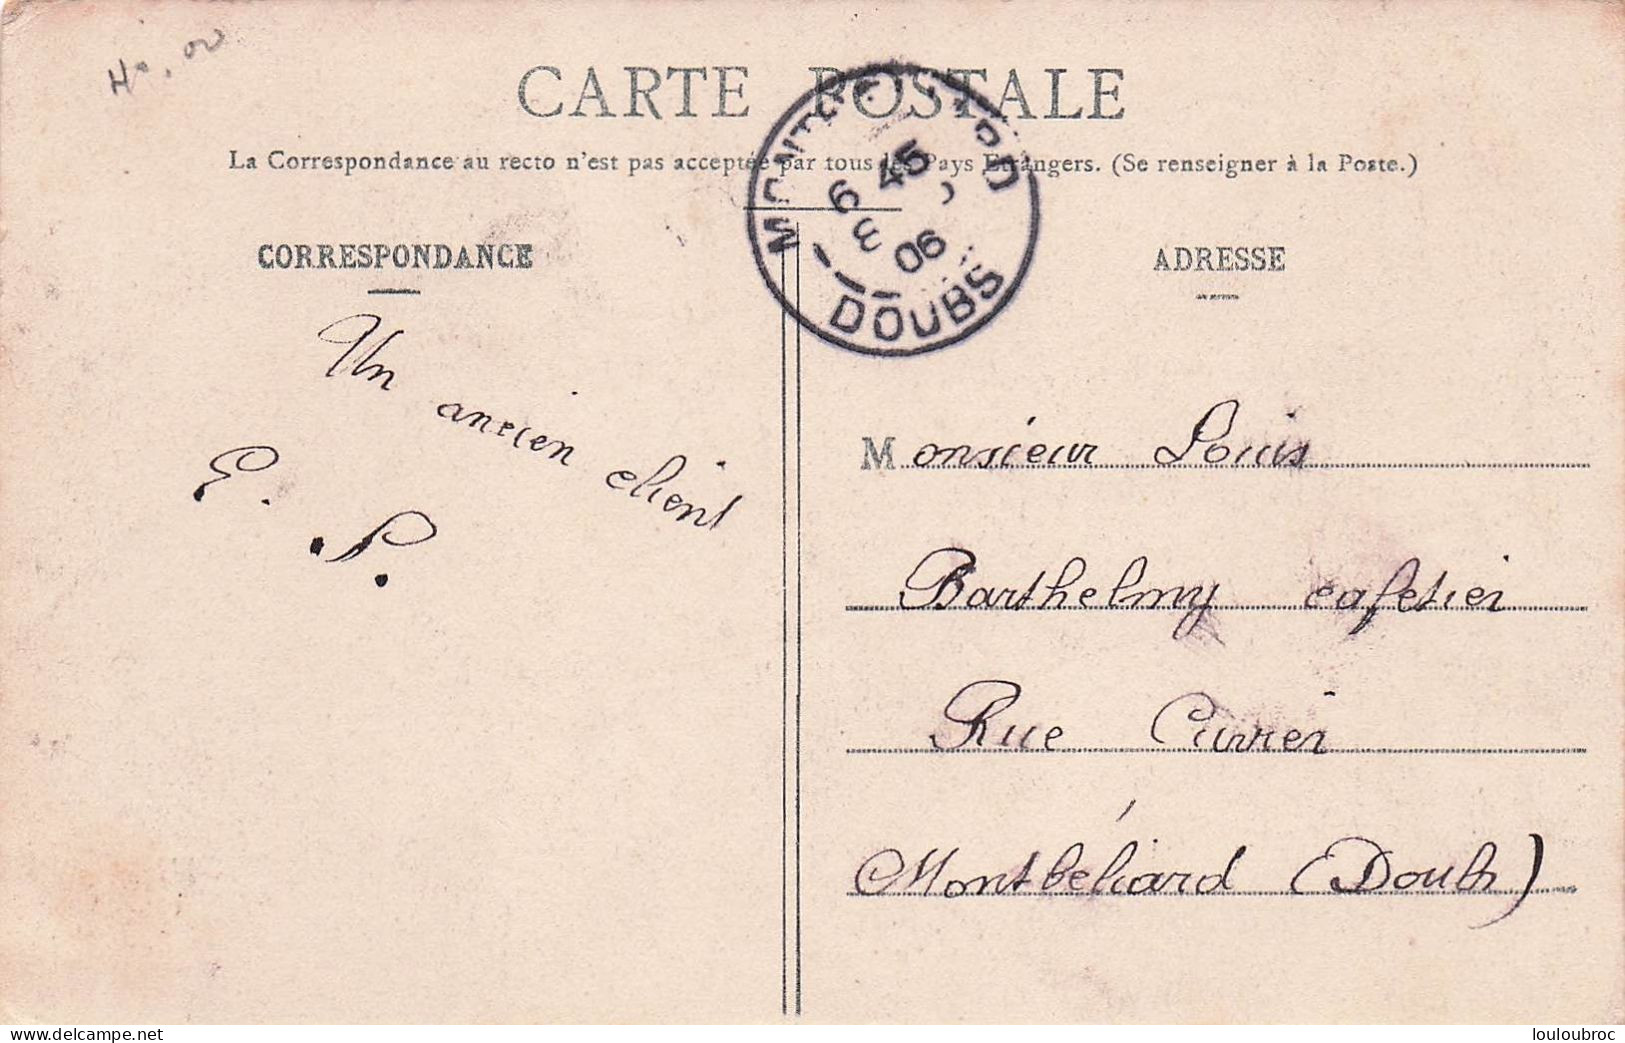 CARTE POSTALE
La Correspondance au recto n'est pas acceptée par tous les Pays Etrangers. (Se renseigner à la Poste.)
CORRESPONDANCE
ADRESSE
DOUBS
6 45
06
Un ancien client
E. P.
Monsieur Louis
Barthelmy cafetier
Rue Cuvier
Montbéliard (Doubs)
delcampe.net
louloubroc